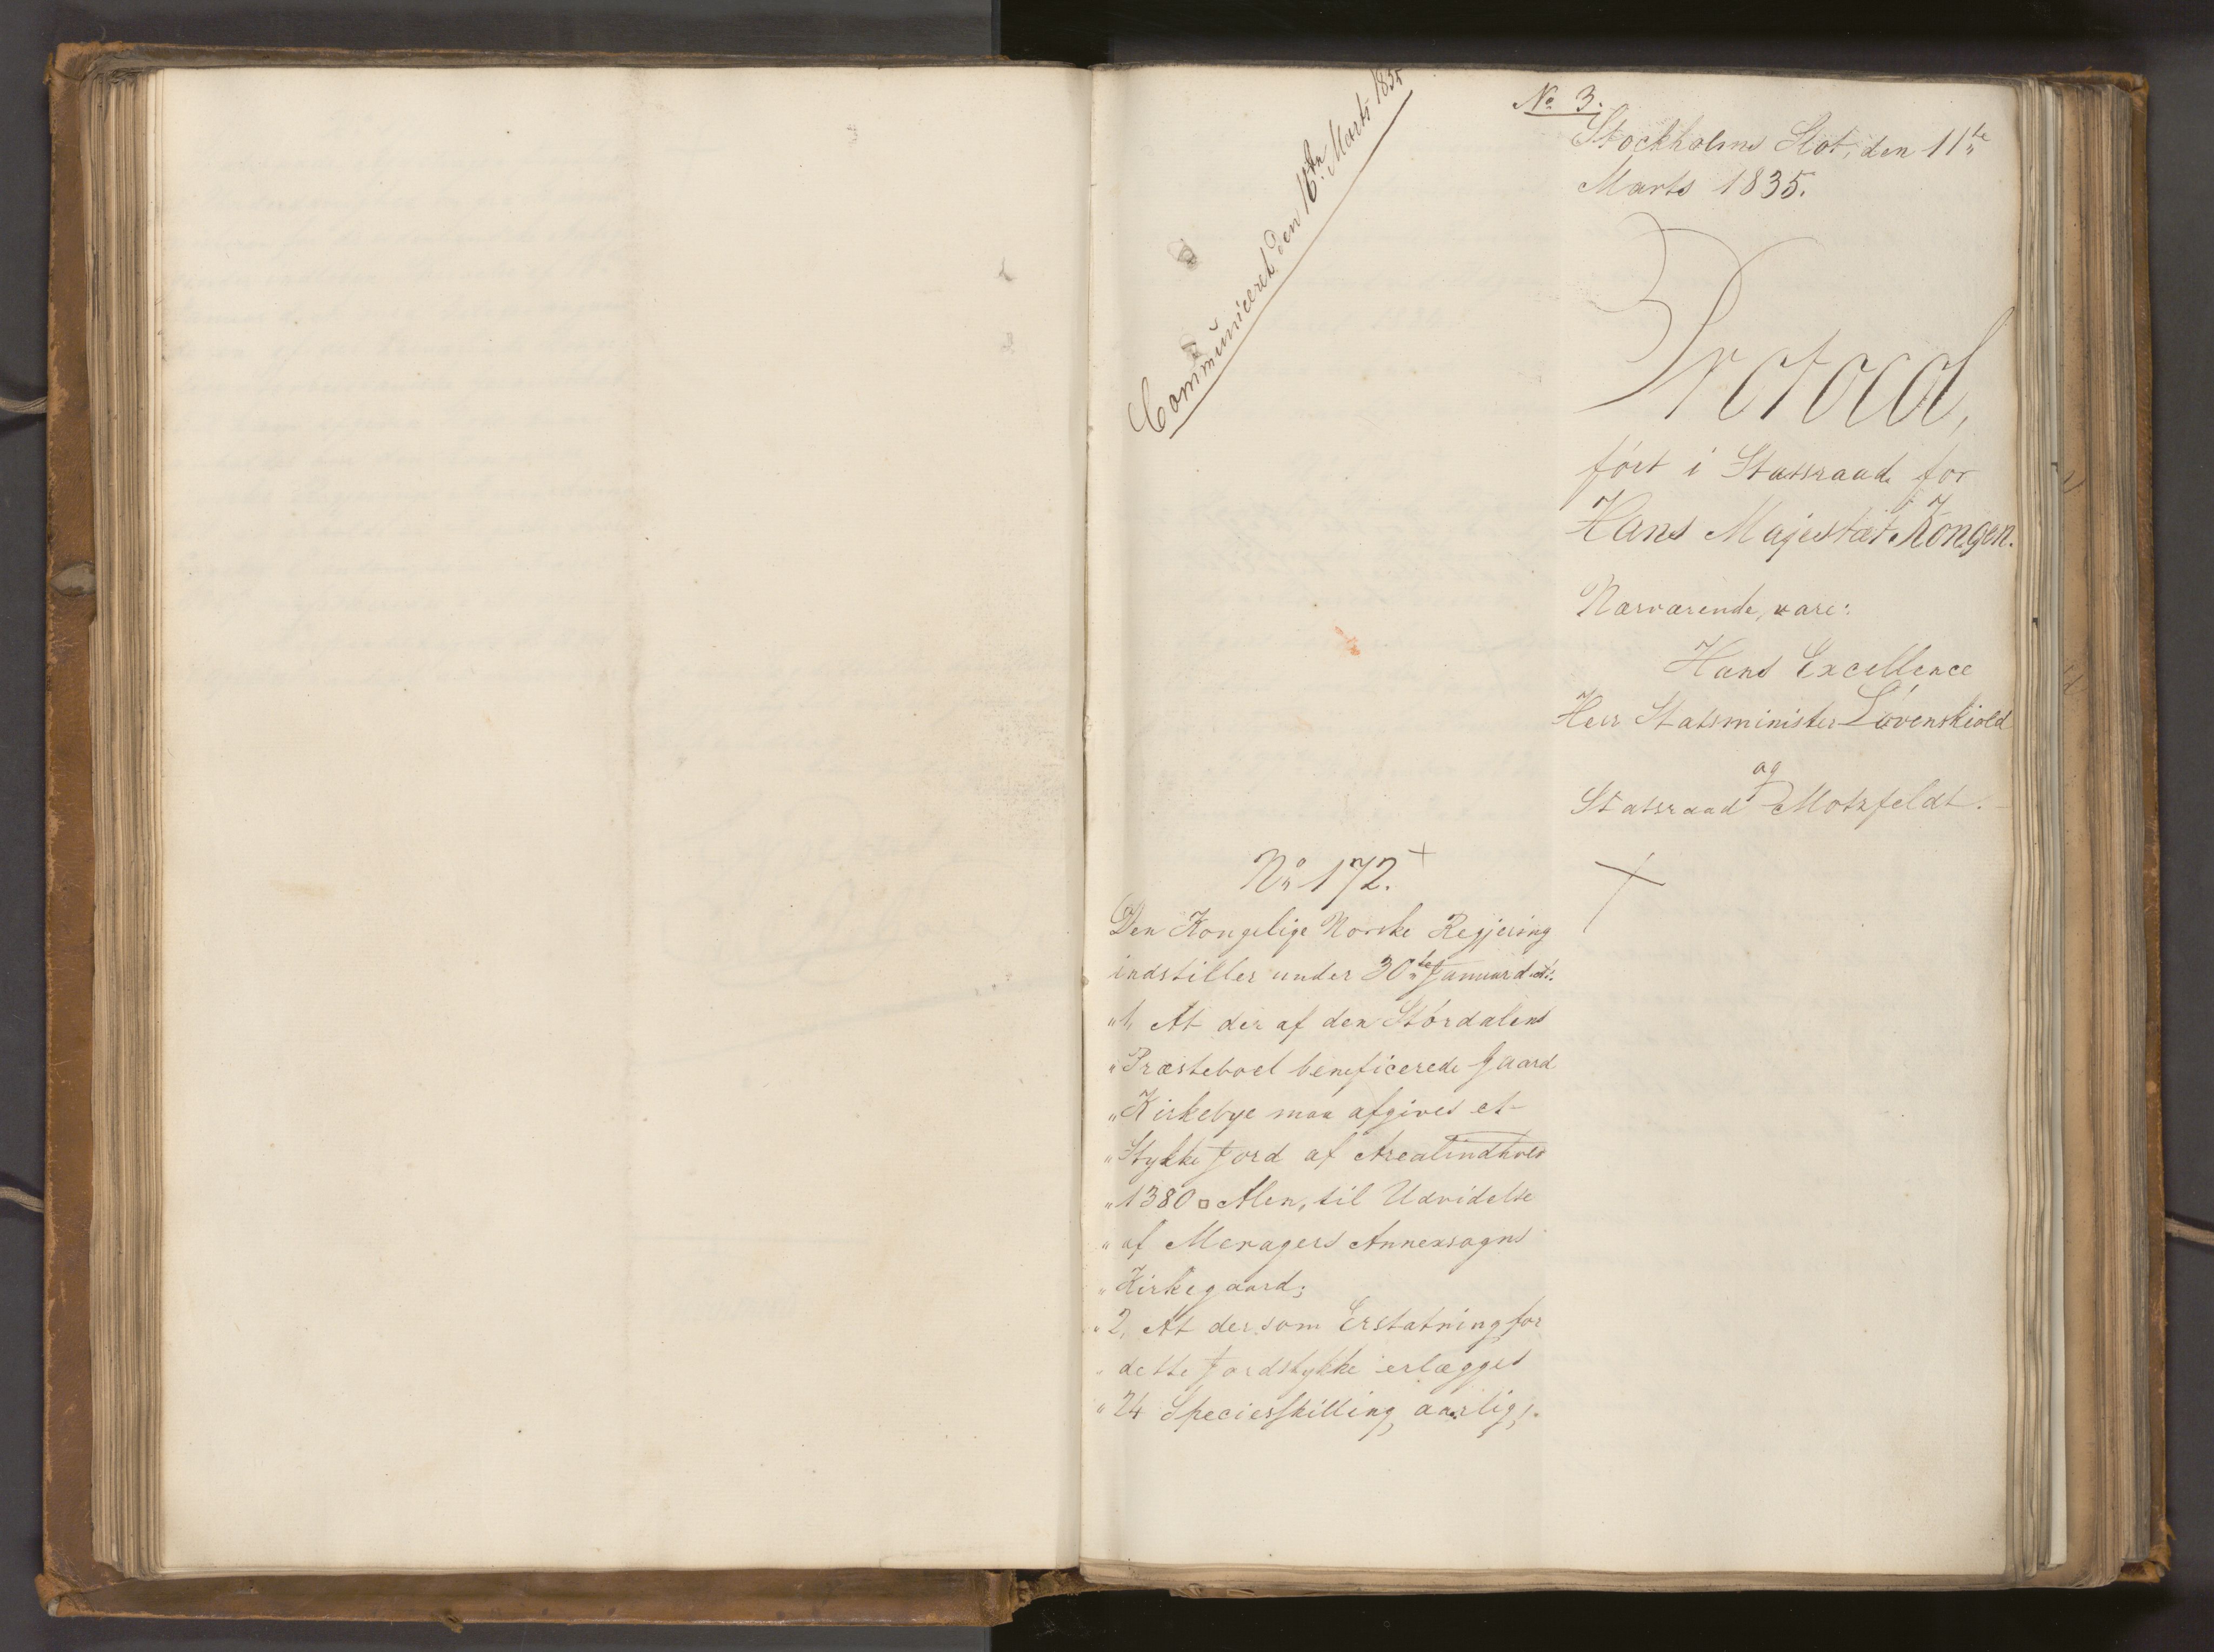 Communiceret den 16de Marts 1835
No 3.
Stockholms Slot, den 11te
Marts 1835.
Protocol,
ført i Statsraad for
Hans Majestæt Kongen.
Nærværende vare:
Hans Excellence
Herr Statsminister Løvenskiold
og
Statsraad Motzfeldt.
No 172. +
Den Kongelige Norske Regjering
indstiller under 30te Januar d. A.:
"1, At der af den Størdalens
"Præsteboel beneficerede Gaard
"Kirkebye maa afgives et
"Stykke Jord af Arealindhold
"1380 □ Alen, til Udvidelse
"af Meragers Annexsogns
"Kirkegaard;
"2, At der som Erstatning for
"dette Jordstykke erlægges
"24 Speciesskilling aarlig,